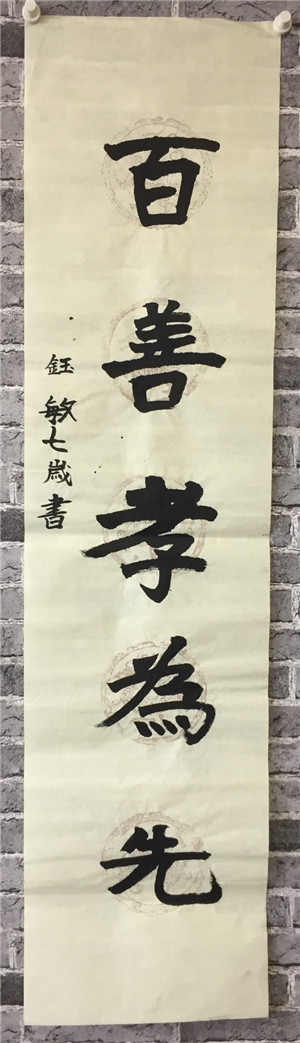 百善孝為先
鈺敏七歲書